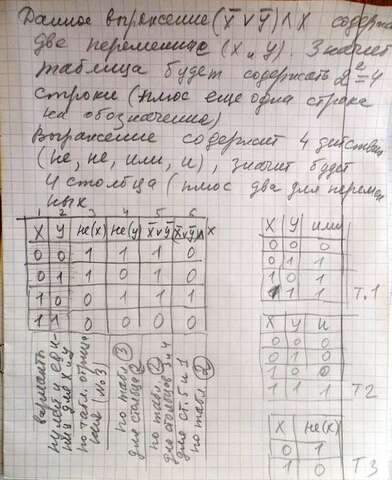 Данное выражение (X̅ ∨ Y̅) ∧ X содержа
две переменные (X и Y). Значит
таблица будет содержать 2²=4
строки (плюс еще одна строка
на обозначение)
Выражение содержит 4 действия
(не, не, или, и), значит будет
4 столбца (плюс два для перемен
ных
1 2 3 4 5 6
X У не(x) не(y) X̅∨Y̅ (X̅∨Y̅)∧X
0 0 1 1 1 0
0 1 1 0 1 0
1 0 0 1 1 1
1 1 0 0 0 0
варианты
нулей и еди
ниц для X и У
по табл.
№3
по табл. ③
для столбца ②
по табл. ①
для столбцов 3 и 4
для ст. 5 и 1
по табл. ②
X У или
0 0 0
0 1 1
1 0 1
1 1 1
Т.1
X У и
0 0 0
0 1 0
1 0 0
1 1 1
Т2
X не(x)
0 1
1 0
Т3